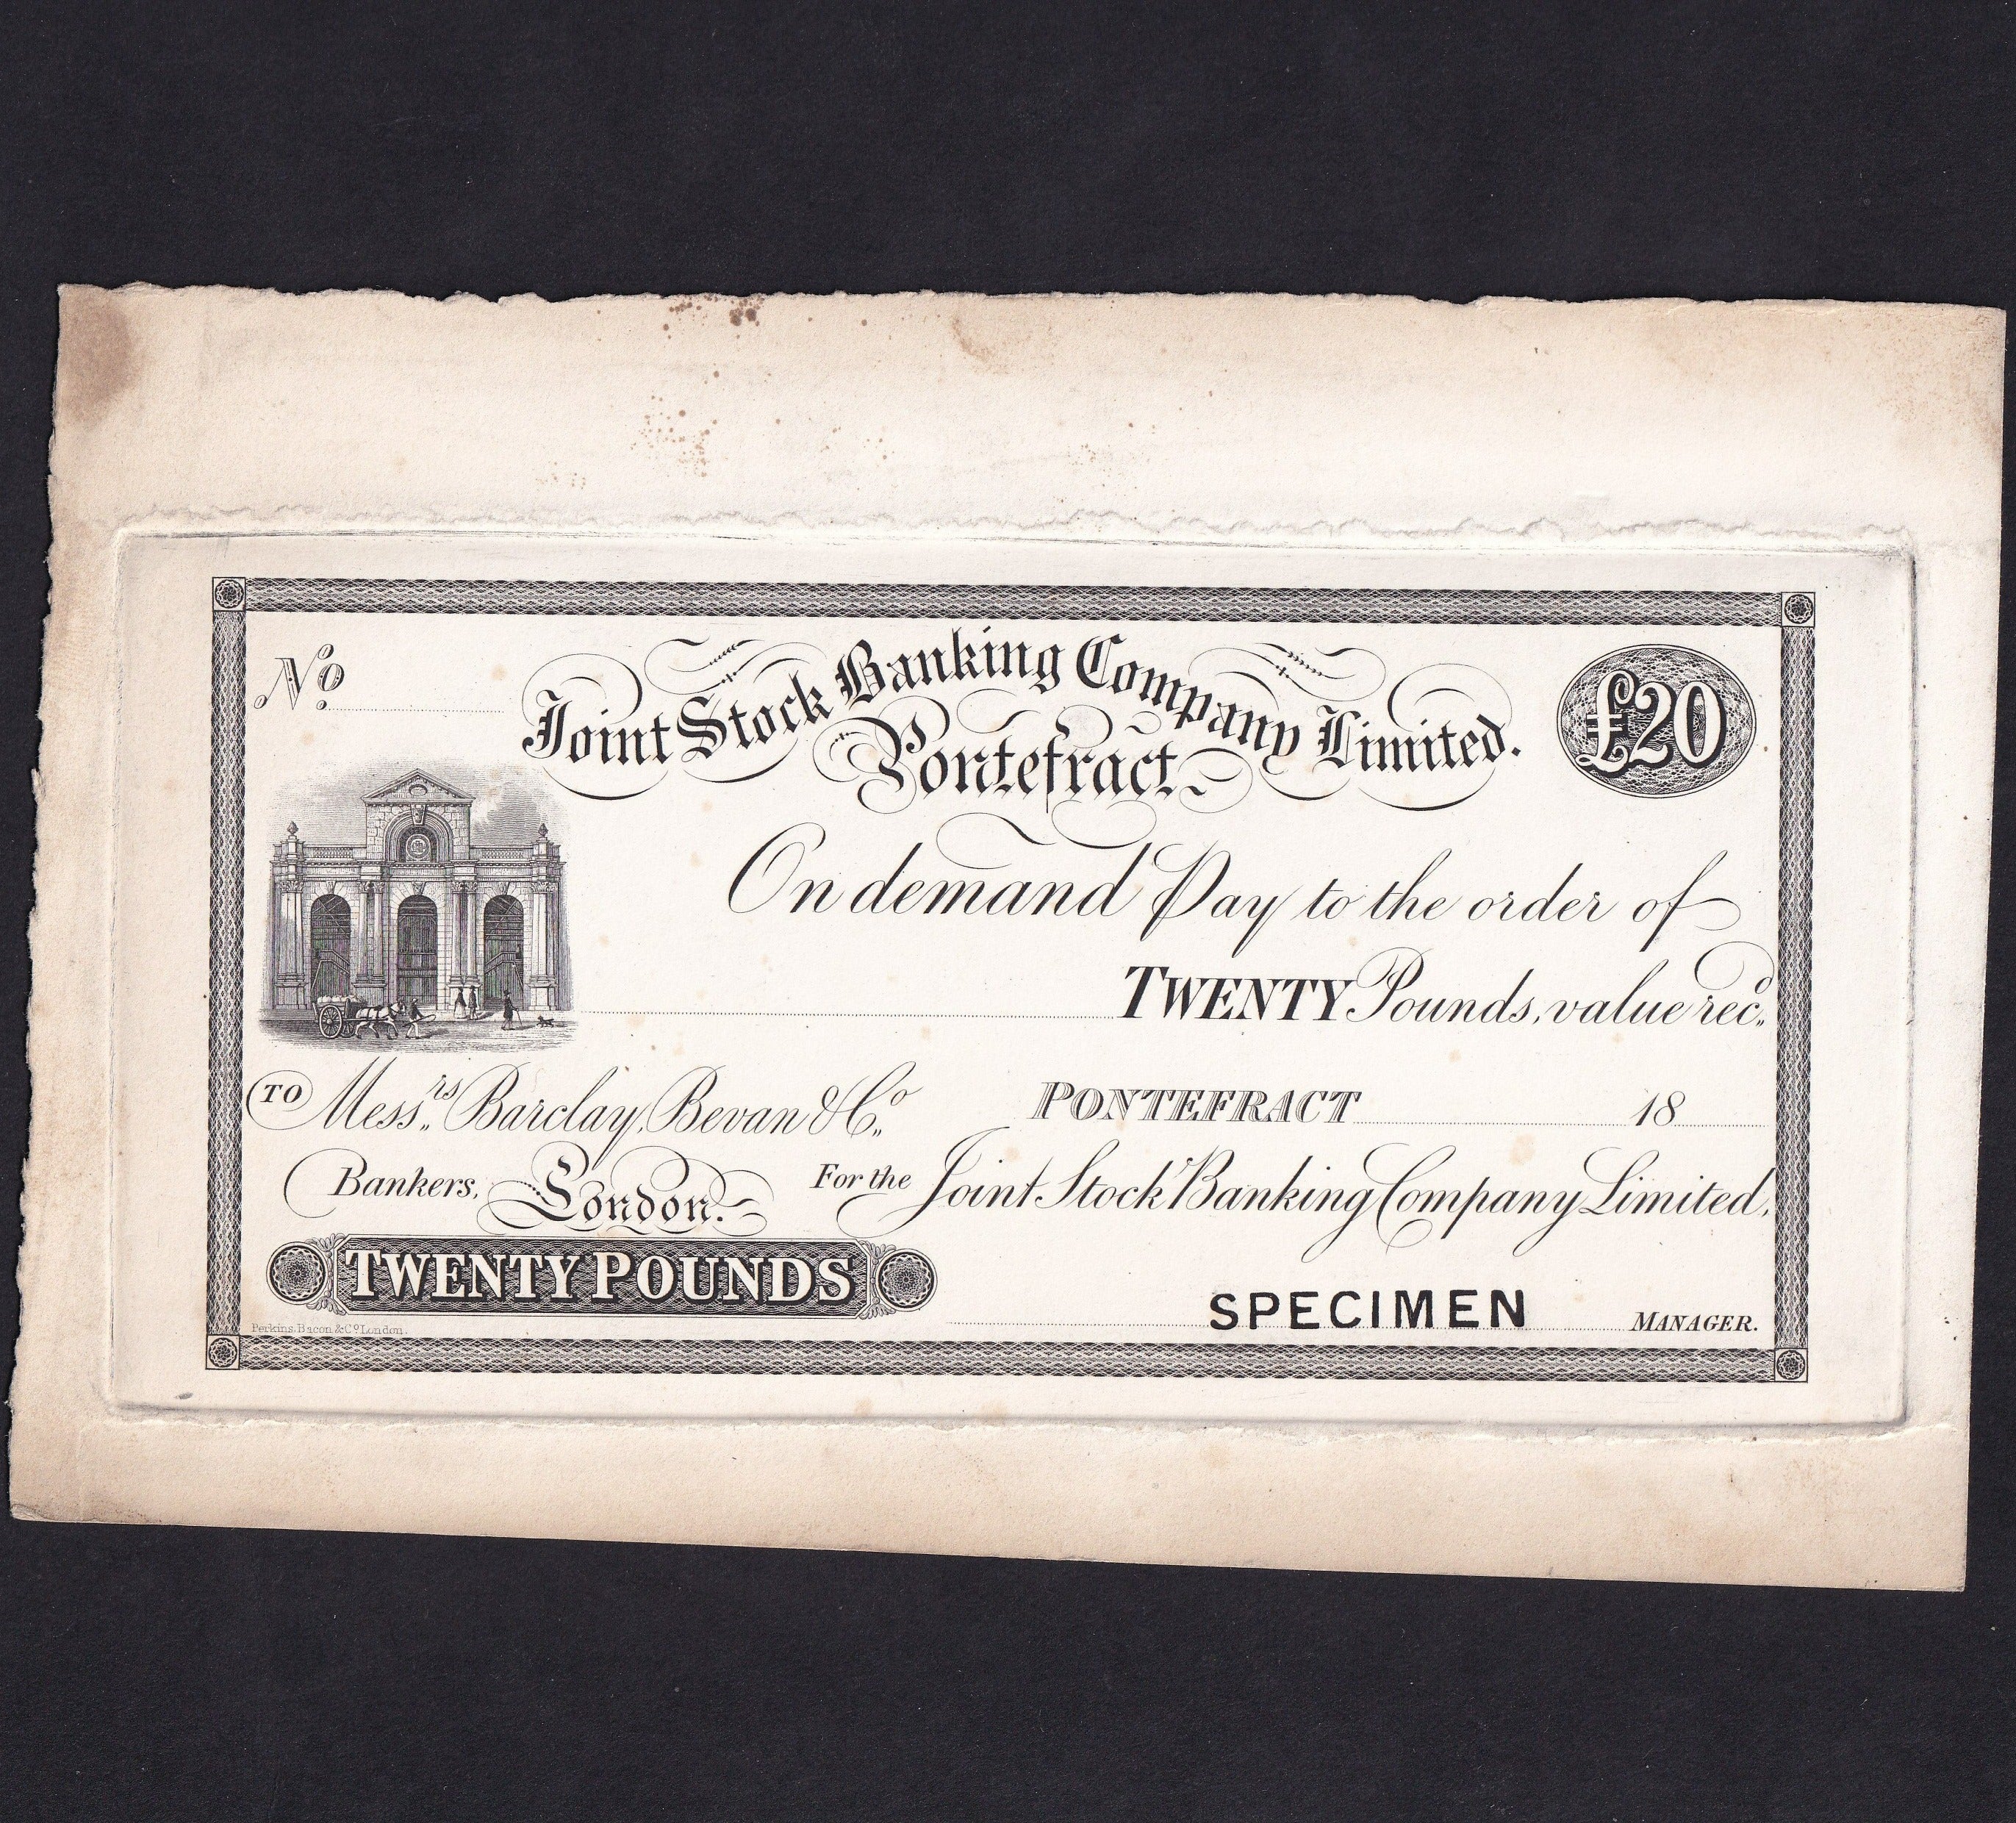 No
Joint Stock Banking Company Limited.
Pontefract.
£20
On demand Pay to the order of
TWENTY Pounds, value recd.
TO Messrs. Barclay, Bevan & Co.
Bankers, London.
PONTEFRACT 18
For the Joint Stock Banking Company Limited,
TWENTY POUNDS
SPECIMEN MANAGER.
Perkins, Bacon & Co London.